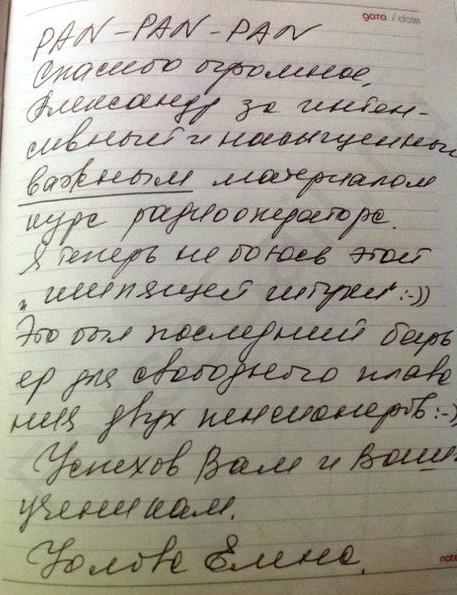 дата / date
PAN-PAN-PAN
Спасибо огромное,
Александр за интен-
сивный и насыщенный
важным материалом
курс радиооператора.
Я теперь не боюсь этой
„шипящей штуки“:-))
Это был последний барь
ер для свободного плава
ния двух пенсионеров:-)
Успехов Вам и Ваш
ученикам.
Елена
note